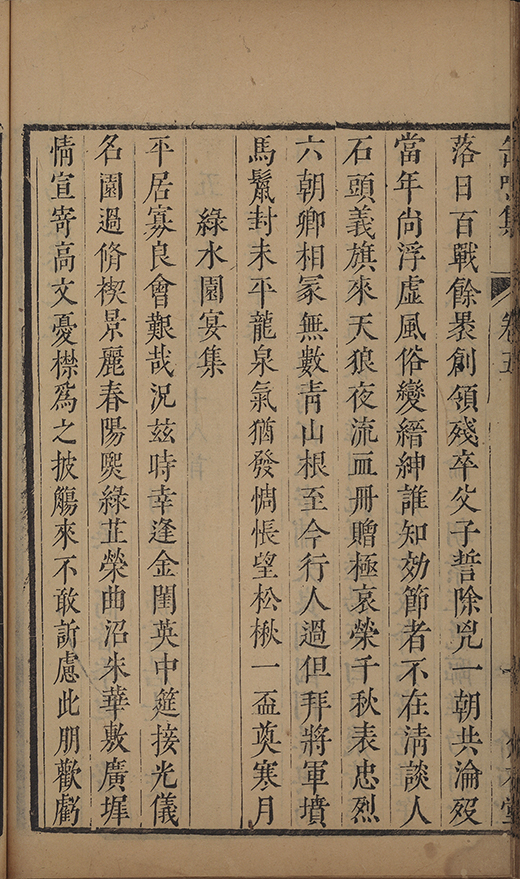 缶鳴集 卷五
落日百戰餘褁創領殘卒父子誓除兇一朝共淪歿
當年尚浮虛風俗變縉紳誰知効節者不在清談人
石頭義旗來天狼夜流血冊贈極哀榮千秋表忠烈
六朝卿相冢無數靑山根至今行人過但拜將軍墳
馬鬛封未平龍泉氣猶發惆悵望松楸一盃奠寒月
綠水園宴集
平居寡良會艱哉況茲時幸逢金閨英中筵接光儀
名園過脩禊景麗春陽熈綠芷榮曲沼朱華敷廣墀
情宣寄高文憂襟爲之披觴來不敢訴慮此朋歡虧